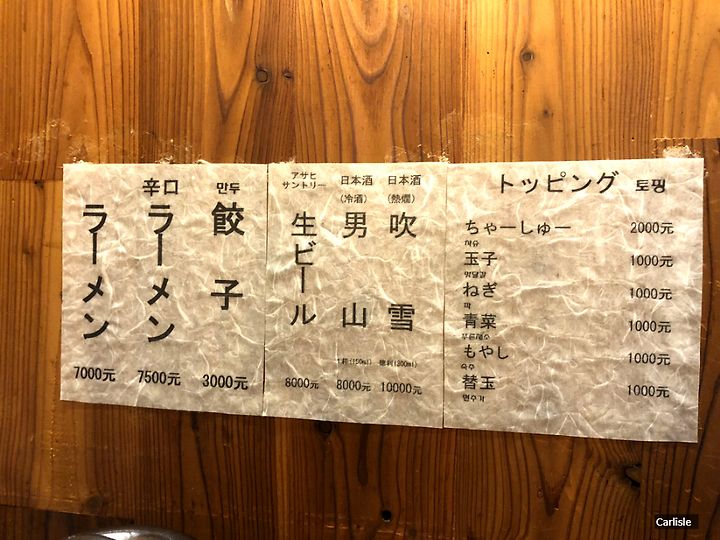 ラーメン
7000元
辛口
ラーメン
7500元
만두
餃子
3000元
アサヒ
サントリー
生ビール
8000元
日本酒
(冷酒)
男山
(150ml)
8000元
日本酒
(熱燗)
吹雪
徳利(300ml)
10000元
トッピング 토핑
ちゃーしゅー 2000元
차슈
玉子 1000元
맛달걀
ねぎ 1000元
파
青菜 1000元
푸른채소
もやし 1000元
숙주
替玉 1000元
면추가
Carlisle